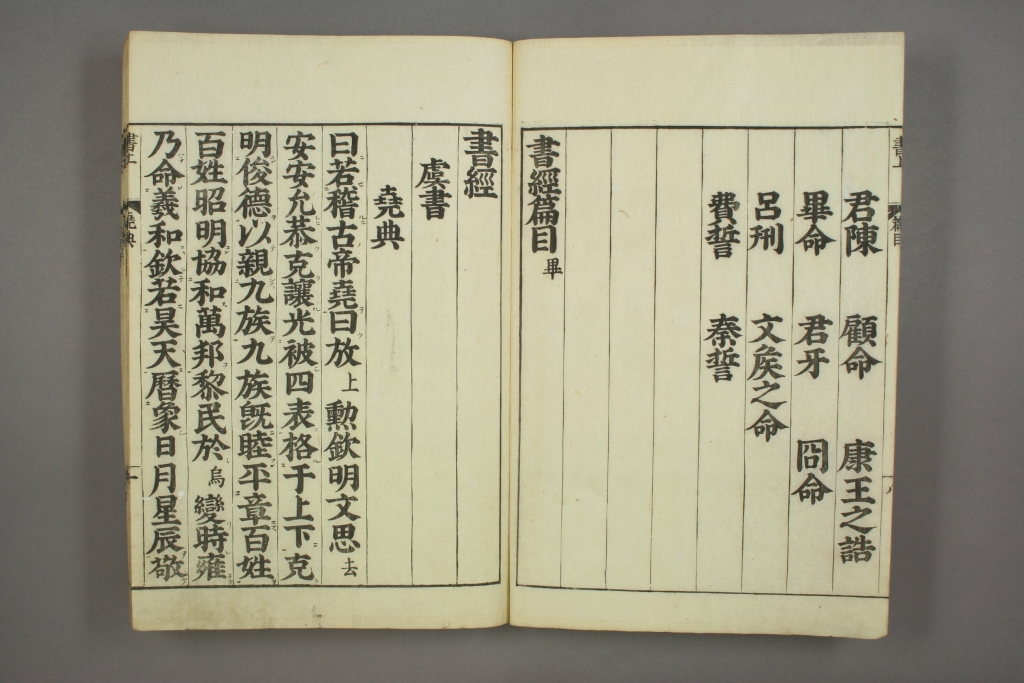 君陳 顧命 康王之誥
畢命 君牙 冏命
呂刑 文矦之命
費誓 秦誓
書經篇目畢
書經
虞書
堯典
曰若稽古帝堯曰放上勲欽明文思去
安安允恭克讓光被四表格于上下克
明俊德以親九族九族旣睦平章百姓
百姓昭明協和萬邦黎民於烏變時雍
乃命羲和欽若昊天曆象日月星辰敬
堯典